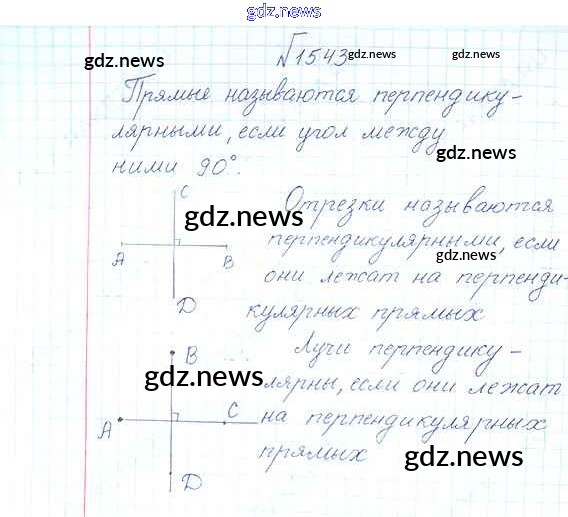 gdz.news
№1543 gdz.news
gdz.news
Прямые называются перпендику-
лярными, если угол между
gdz.news
ними 90°.
C
gdz.news
A B
D
Отрезки называются
перпендикулярными, если
gdz.news
они лежат на перпенди-
кулярных прямых
B
gdz.news
A C
D
Лучи перпендику-
лярны, если они лежат
на перпендикулярных
прямых
gdz.news